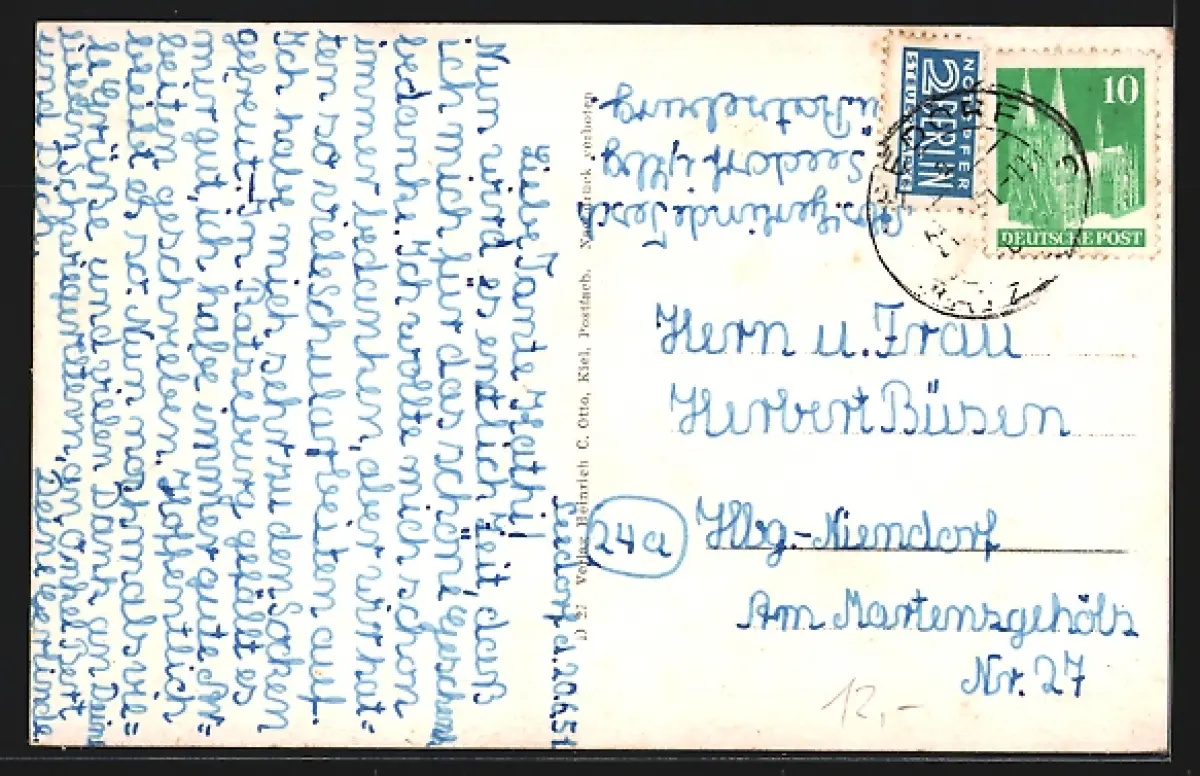 Seedorf d. 20.6.51
Liebe Tante Käthi!
Nun wird es entlich Zeit, daß
ich mich für das schöne Geschenk
bedanke. Ich wollte mich schon
immer bedanken, aber wir hat=
ten so viele Schularbeiten auf.
Ich habe mich sehr zu den Socken
gefreut. In Ratzeburg gefält es
mir gut, ich habe immer gute Ar=
beiten geschrieben. Hoffentlich
bleibt es so. Nun nochmals vie=
le Grüße und vielen Dank an Deine
Schwiegereltern, an Onkel Bert
und Dich.
Deine Gerlinde.
D 27 Verlag Heinrich C. Otto, Kiel, Postfach. Nachdruck verboten
Abs. Gerlinde
Seedorf
ü. Ratzeburg
NOTOPFER
2 BERLIN
STEUERMARKE
10
DEUTSCHE POST
Herrn u. Frau
Herbert Büsen
24a Hbg.-Niendorf
Am Martensgehölz
Nr. 27
12,-